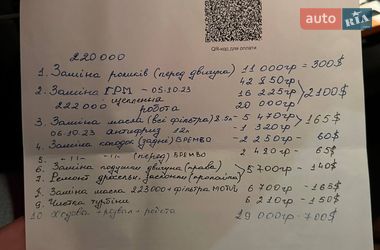 auto RIA
QR-код для оплати
220000
1. Заміна роликів (перед двигуна) 11 000гр = 300$
42 850гр
2. Заміна ГРМ - 05.10.23 16 225гр 2100$
222 000 щеплення робота 20 000гр
3. Заміна масла (всі фільтра) 5 470гр 165$
06.10.23 антифриз 12л - 1 320гр
4. Заміна колодок (задні) БРЕМБО - 2 250гр - 60$
5 -//- -//- (перед) БРЕМБО 2 420гр - 65$
6. Заміна подушки двигуна (права) 5 700гр - 140$
7. Ремонт дросельн. заслонки (пропайка)
8. Заміна масла 223000 + фільтра MOTUL 6 700гр - 165$
9. Чистка турбіни 6 210гр - 150$
10. Ходова + розвал + рейста 29 000гр - 700$